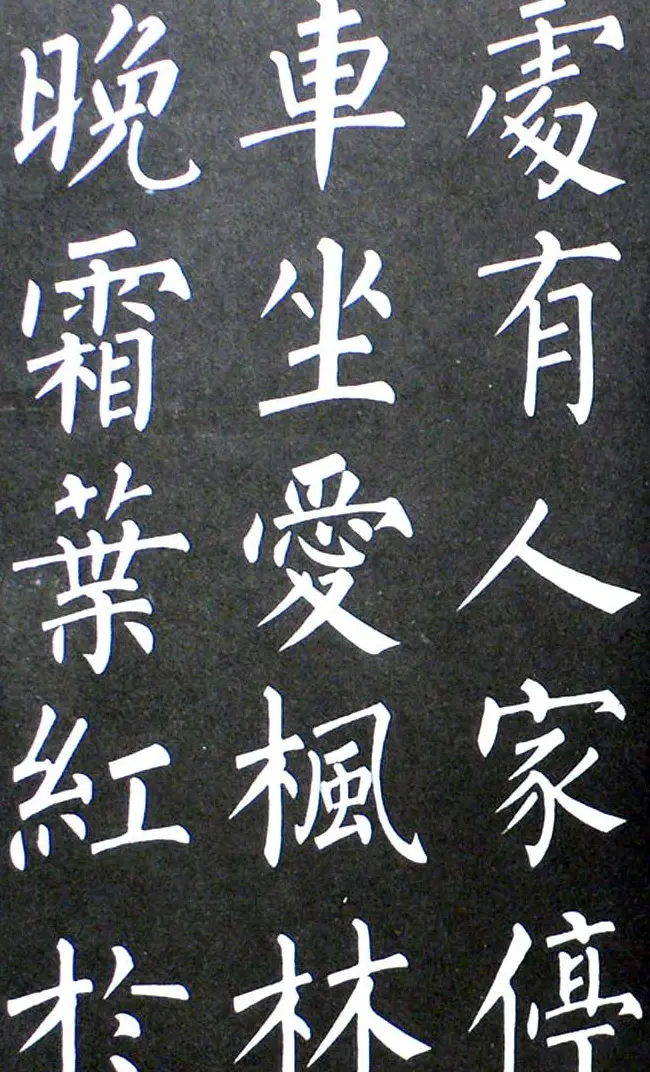 處有人家停
車坐愛楓林
晚霜葉紅於